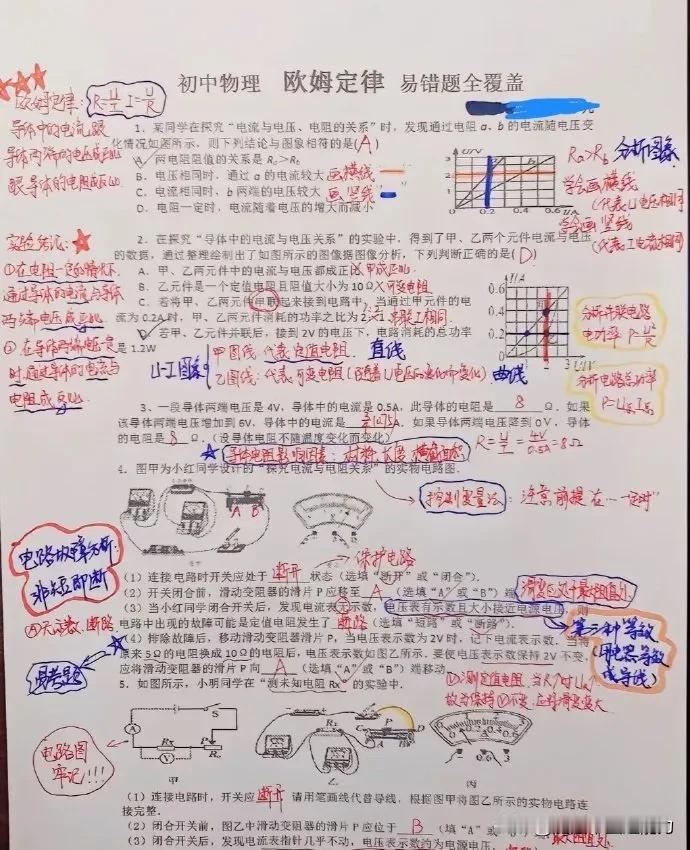 初中物理 欧姆定律 易错题全覆盖
欧姆定律: R=U/I I=U/R
导体中的电流跟
导体两端的电压成正比
跟导体的电阻成反比
1、某同学在探究“电流与电压、电阻的关系”时，发现通过电阻 a、b 的电流随电压变
化情况如图所示，则下列结论与图象相符的是(A)
A、两电阻阻值的关系是 Ra>Rb
B、电压相同时，通过 a 的电流较大 画横线
C、电流相同时，b 两端的电压较大 画竖线
D、电阻一定时，电流随着电压的增大而减小
Ra>Rb 分析图象
学会画横线
(代表U电压相同)
学会画竖线
(代表I电流相同)
实验结论:
①在电阻一定的情况下
通过导体的电流与导体
两端电压成正比
②在导体两端电压一定
时,通过导体的电流与
电阻成反比
2、在探究“导体中的电流与电压关系”的实验中，得到了甲、乙两个元件电流与电压
的数据，通过整理绘制出了如图所示的图像据图像分析，下列判断正确的是(D)
A. 甲、乙两元件中的电流与电压都成正比 X 甲成正比
B. 乙元件是一个定值电阻且阻值大小为 10Ω X 可变电阻
C. 若将甲、乙两元件串联起来接到电路中，当通过甲元件的电
流为 0.2A 时，甲、乙两元件消耗的功率之比为 2:1 串联I相同
D. 若甲、乙元件并联后，接到 2V 的电压下，电路消耗的总功率
是 1.2W
U-I图象 甲图线:代表:定值电阻. 直线
乙图:代表:可变电阻 曲线
分析并联电路
电功率 P=U²/R
分析电路总功率
P=U总I总
3、一段导体两端电压是 4V，导体中的电流是 0.5A，此导体的电阻是 8 Ω．如果
该导体两端电压增加到 6V，导体中的电流是 0.75A．如果导体两端电压降到 0V，导体
的电阻是 8 Ω．(设导体电阻不随温度变化而变化)
R=U/I=4V/0.5A=8Ω
导体电阻影响因素：材料、长度、横截面积
4．图甲为小红同学设计的“探究电流与电阻关系”的实物电路图．
控制变量法：注意前提在“一定时”
电路故障分析:
非短即断
(1) 连接电路时开关应处于 断开 状态（选填“断开”或“闭合”）．
保护电路
(2) 开关闭合前，滑动变阻器的滑片 P 应移至 A（选填“A”或“B”）端
滑变在处于最大阻值处
(3) 当小红同学闭合开关后，发现电流表无示数，电压表有示数且大小接近电源电压，则
电路中出现的故障可能是定值电阻发生了 断路（选填“短路”或“断路”）．
(4) 排除故障后，移动滑动变阻器滑片 P，当电压表示数为 2V 时，记下电流表示数．当将
原来 5Ω的电阻换成 10Ω的电阻后，电压表示数如图乙所示．要使电压表示数保持 2V 不变，
应将滑动变阻器的滑片 P 向 A（选填“A”或“B”）端移动．
易考题
5．如图所示，小明同学在“测未知电阻 Rx”的实验中．
电路图
牢记!!!
甲
乙
丙
(1) 连接电路时，开关应 断开 请用笔画线代替导线，根据图甲将图乙所示的实物电路连
接完整．
(2) 闭合开关前，图乙中滑动变阻器的滑片 P 应位于 B（填“A”或
(3) 闭合开关后，发现电流表指针几乎不动，电压表示数约为电源电压，